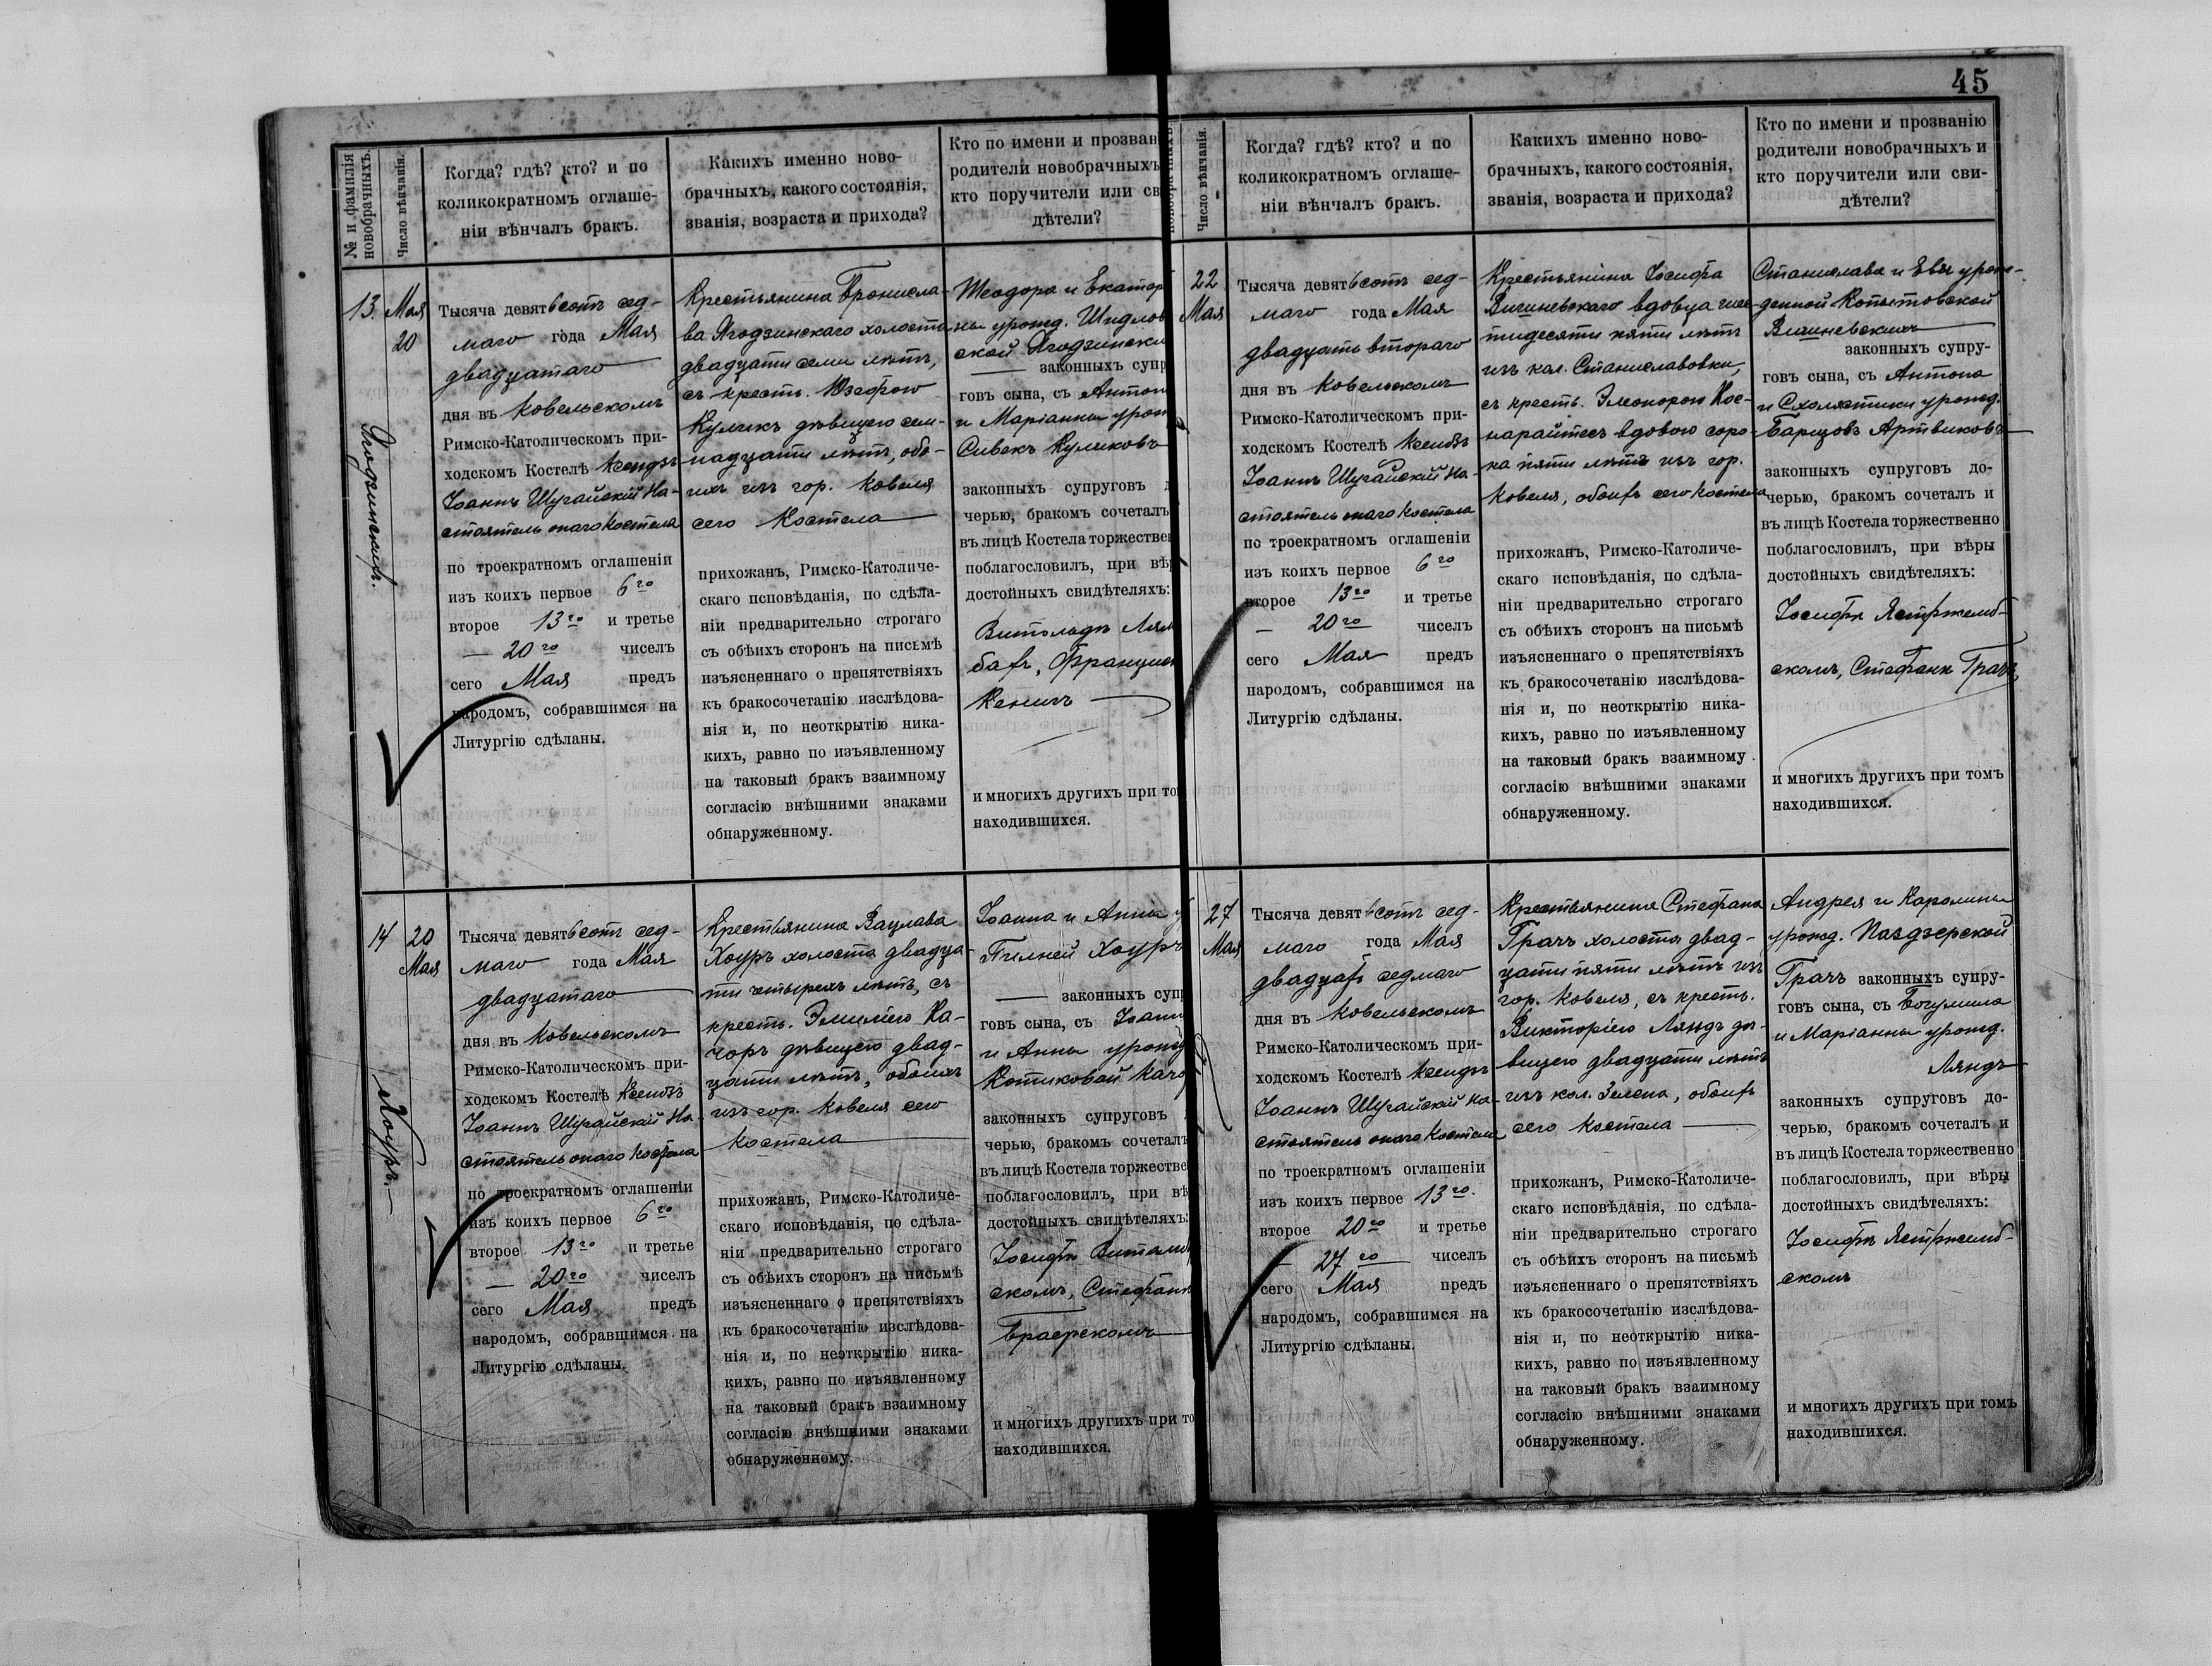 45
№ и фамилія новобрачныхъ.
Число вѣнчанія.
Когда? гдѣ? кто? и по
коликократномъ оглаше-
ніи вѣнчалъ бракъ.
Какихъ именно ново-
брачныхъ, какого состоянія,
званія, возраста и прихода?
Кто по имени и прозван
родители новобрачныхъ
кто поручители или св
дѣтели?
13.
Мая
20
Ягодзинскій.
Тысяча девятьсотъ сед-
маго года Мая
двадцатаго
дня въ Ковельскомъ
Римско-Католическомъ при-
ходскомъ Костелѣ Ксендзъ
Іоаннъ Шугайскій На-
стоятель онаго Костела
по троекратномъ оглашеніи
изъ коихъ первое 6го
второе 13го и третье
— 20го чиселъ
сего Мая предъ
народомъ, собравшимся на
Литургію сдѣланы.
Крестьянина Бронисла-
ва Ягодзинскаго холоста
двадцати семи лѣтъ,
съ кресть. Юзефою
Куликъ дѣвицею сем-
надцати лѣтъ, обо-
ихъ изъ гор. Ковеля
сего Костела
прихожанъ, Римско-Католиче-
скаго исповѣданія, по сдѣла-
ніи предварительно строгаго
съ обѣихъ сторонъ на письмѣ
изъясненнаго о препятствіяхъ
къ бракосочетанію изслѣдова-
нія и, по неоткрытію ника-
кихъ, равно по изъявленному
на таковый бракъ взаимному
согласію внѣшними знаками
обнаруженному.
Теодора и Екатер
ны урожд. Шидлов
ской Ягодзински
законныхъ супр
говъ сына, съ Антон
и Маріанны урож
Сивекъ Куликовъ
законныхъ супруговъ д
черью, бракомъ сочеталъ
въ лицѣ Костела торжествен
поблагословилъ, при вѣр
достойныхъ свидѣтеляхъ:
Витольдъ Лям
бахъ, Францис
Кеничъ
и многихъ другихъ при то
находившихся.
14
20
Мая
Хоуръ.—
Тысяча девятьсотъ сед-
маго года Мая
двадцатаго
дня въ Ковельскомъ
Римско-Католическомъ при-
ходскомъ Костелѣ Ксендзъ
Іоаннъ Шугайскій На-
стоятель онаго Костела
по троекратномъ оглашеніи
изъ коихъ первое 6го
второе 13го и третье
— 20го чиселъ
сего Мая предъ
народомъ, собравшимся на
Литургію сдѣланы.
Крестьянина Вацлава
Хоуръ холоста двадца-
ти четырехъ лѣтъ, съ
кресть. Эмиліею Ка-
чоръ дѣвицею двад-
цати лѣтъ, обоихъ
изъ гор. Ковеля сего
Костела
прихожанъ, Римско-Католиче-
скаго исповѣданія, по сдѣла-
ніи предварительно строгаго
съ обѣихъ сторонъ на письмѣ
изъясненнаго о препятствіяхъ
къ бракосочетанію изслѣдова-
нія и, по неоткрытію ника-
кихъ, равно по изъявленному
на таковый бракъ взаимному
согласію внѣшними знаками
обнаруженному.
Іоанна и Анны у
Пилней Хоуръ
законныхъ супр
говъ сына, съ Іоанн
и Анны урожд
Котиковой Качо
законныхъ супруговъ
черью, бракомъ сочеталъ
въ лицѣ Костела торжестве
поблагословилъ, при вѣ
достойныхъ свидѣтеляхъ:
Іосифъ
скомъ, Стефанъ
и многихъ другихъ при то
находившихся.
новобрачныхъ.
Число вѣнчанія.
Когда? гдѣ? кто? и по
коликократномъ оглаше-
ніи вѣнчалъ бракъ.
Какихъ именно ново-
брачныхъ, какого состоянія,
званія, возраста и прихода?
Кто по имени и прозванію
родители новобрачныхъ и
кто поручители или сви-
дѣтели?
22
Мая
Тысяча девятьсотъ сед-
маго года Мая
двадцать втораго
дня въ Ковельскомъ
Римско-Католическомъ при-
ходскомъ Костелѣ Ксендзъ
Іоаннъ Шугайскій На-
стоятель онаго Костела
по троекратномъ оглашеніи
изъ коихъ первое 6го
второе 13го и третье
— 20го чиселъ
сего Мая предъ
народомъ, собравшимся на
Литургію сдѣланы.
Крестьянина Іосифа
Вишневскаго вдовца шес-
тидесяти пяти лѣтъ
изъ кол. Станиславовки,
съ кресть. Элеонорою Кос-
нарайтесъ вдовою соро-
ка пяти лѣтъ изъ гор.
Ковеля, обоихъ сего Костела
прихожанъ, Римско-Католиче-
скаго исповѣданія, по сдѣла-
ніи предварительно строгаго
съ обѣихъ сторонъ на письмѣ
изъясненнаго о препятствіяхъ
къ бракосочетанію изслѣдова-
нія и, по неоткрытію ника-
кихъ, равно по изъявленному
на таковый бракъ взаимному
согласію внѣшними знаками
обнаруженному.
Станислава и Евы урож-
денной Копытовской
Вишневскихъ
законныхъ супру-
говъ сына, съ Антона
и Схоластики урожд.
Барщовъ Артвиковъ
законныхъ супруговъ до-
черью, бракомъ сочеталъ и
въ лицѣ Костела торжественно
поблагословилъ, при вѣры
достойныхъ свидѣтеляхъ:
Іосифъ Ястржемб-
скомъ, Стефанъ Грачъ
и многихъ другихъ при томъ
находившихся.
27
Мая
Тысяча девятьсотъ сед-
маго года Мая
двадцать седмаго
дня въ Ковельскомъ
Римско-Католическомъ при-
ходскомъ Костелѣ Ксендзъ
Іоаннъ Шугайскій На-
стоятель онаго Костела
по троекратномъ оглашеніи
изъ коихъ первое 13го.
второе 20го и третье
— 27го чиселъ
сего Мая предъ
народомъ, собравшимся на
Литургію сдѣланы.
Крестьянина Стефана
Грачъ холоста двад-
цати пяти лѣтъ изъ
гор. Ковеля, съ кресть.
Викторіею Ляндъ дѣ-
вицею двадцати лѣтъ
изъ кол. Зелена, обоихъ
сего Костела
прихожанъ, Римско-Католиче-
скаго исповѣданія, по сдѣла-
ніи предварительно строгаго
съ обѣихъ сторонъ на письмѣ
изъясненнаго о препятствіяхъ
къ бракосочетанію изслѣдова-
нія и, по неоткрытію ника-
кихъ, равно по изъявленному
на таковый бракъ взаимному
согласію внѣшними знаками
обнаруженному.
Андрея и Каролины
урожд. Паздзерской
Грачъ законныхъ супру-
говъ сына, съ Богумила
и Маріанны урожд.
Ляндъ
законныхъ супруговъ до-
черью, бракомъ сочеталъ и
въ лицѣ Костела торжественно
поблагословилъ, при вѣры
достойныхъ свидѣтеляхъ:
Іосифъ Ястржемб-
скомъ
и многихъ другихъ при томъ
находившихся.